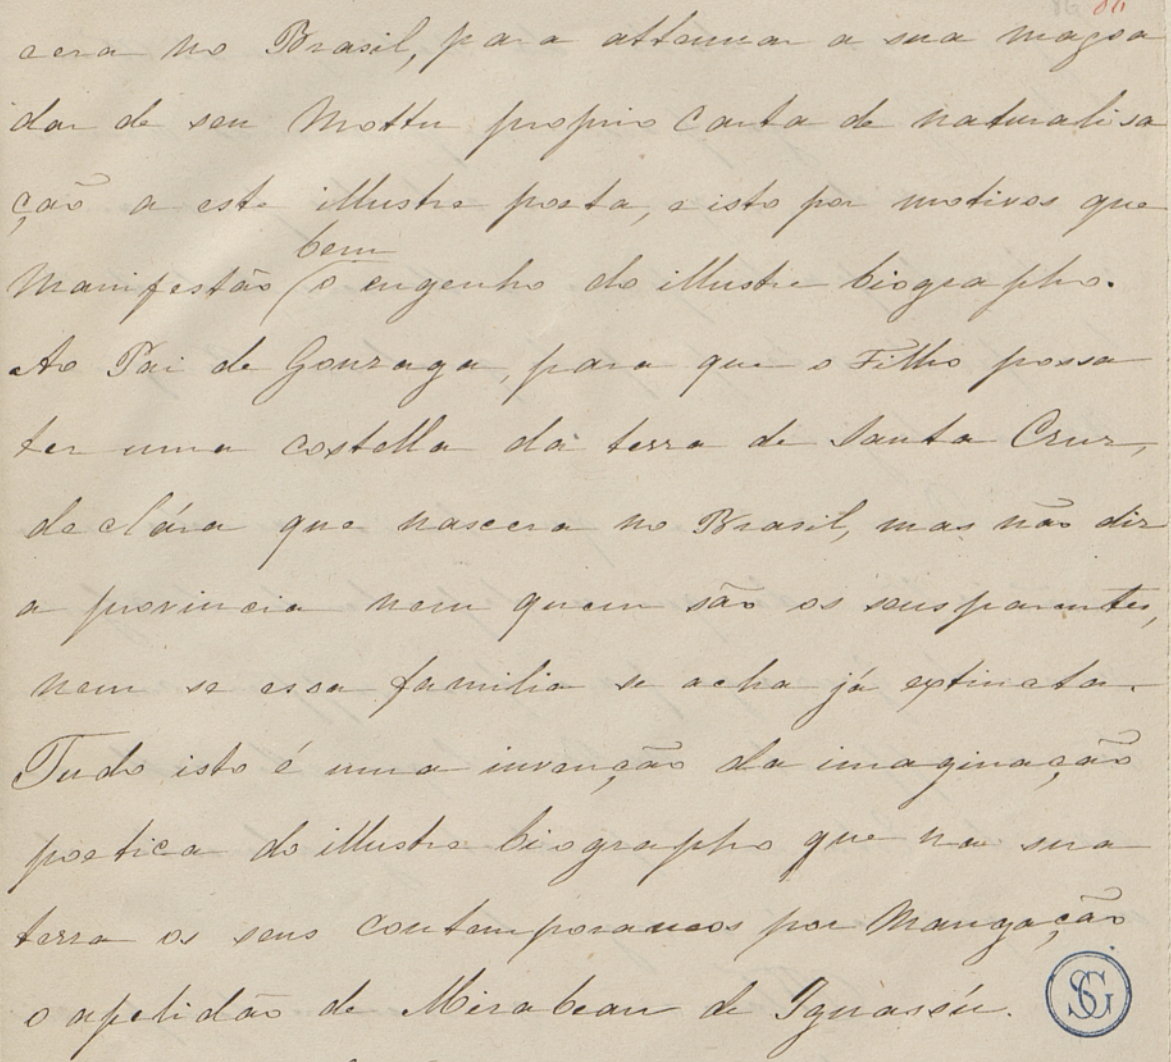 cera no Brasil, para attenuar a sua magoa
dar de seu Mottu proprio Carta de naturalisa
ção a este illustre poeta, e isto por motivos que
bem
Manifestão (o engenho do illustre biographo.
Ao Pai de Gonzaga, para que o Filho possa
ter uma costella da terra de Santa Cruz,
declára que nascera no Brasil, mas não diz
a provincia nem quem são os seus parentes,
nem se essa familia se acha já extincta.
Tudo isto é uma invenção da imaginação
poetica do illustre biographo que na sua
terra os seus contemporaneos por Mangação
o apelidão de Mirabeau de Iguassú.
SG